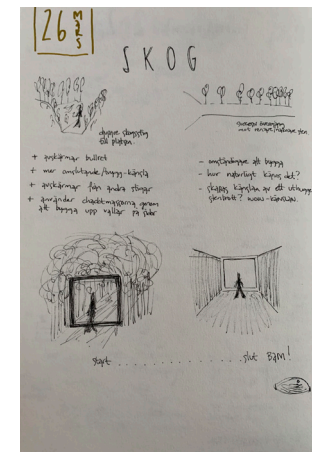 26
MARS
SKOG
skogsstig
till platsen.
+ avskärmar bullret
+ mer omslutande/mygg-känsla
+ avskärmar från andra stugor
+ använder schaktmassorna genom
att bygga upp vallar på sidor
- omständigare att bygga
- hur naturligt känns det?
- skapas känslan av ett uthugget
stenbrott? wow-känslan.
start . . . . . . . . . . . . . . slut BAM!